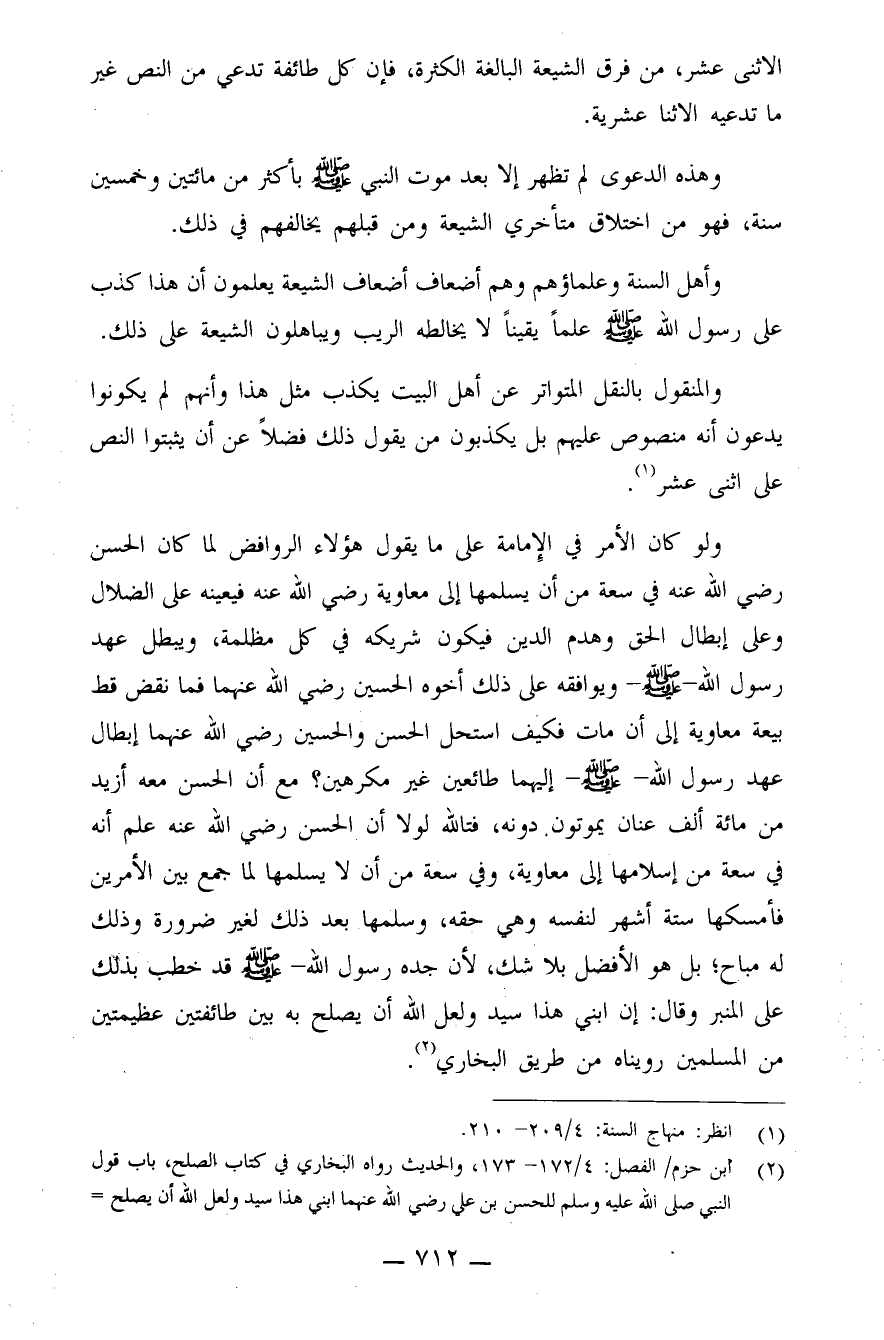 الاثنى عشر، من فرق الشيعة البالغة الكثرة، فإن كل طائفة تدعي من النص غير
ما تدعيه الاثنا عشرية.
وهذه الدعوى لم تظهر إلا بعد موت النبي ﷺ بأكثر من مائتين وخمسين
سنة، فهو من اختلاق متأخري الشيعة ومن قبلهم يخالفهم في ذلك.
وأهل السنة وعلماؤهم وهم أضعاف أضعاف الشيعة يعلمون أن هذا كذب
على رسول الله ﷺ علماً يقيناً لا يخالطه الريب ويباهلون الشيعة على ذلك.
والمنقول بالنقل المتواتر عن أهل البيت يكذب مثل هذا وأنهم لم يكونوا
يدعون أنه منصوص عليهم بل يكذبون من يقول ذلك فضلاً عن أن يثبتوا النص
على اثنى عشر(١).
ولو كان الأمر في الإمامة على ما يقول هؤلاء الروافض لما كان الحسن
رضي الله عنه في سعة من أن يسلمها إلى معاوية رضي الله عنه فيعينه على الضلال
وعلى إبطال الحق وهدم الدين فيكون شريكه في كل مظلمة، ويبطل عهد
رسول الله–ﷺ– ويوافقه على ذلك أخوه الحسين رضي الله عنهما فما نقض قط
بيعة معاوية إلى أن مات فكيف استحل الحسن والحسين رضي الله عنهما إبطال
عهد رسول الله– ﷺ– إليهما طائعين غير مكرهين؟ مع أن الحسن معه أزيد
من مائة ألف عنان يموتون دونه، فتالله لولا أن الحسن رضي الله عنه علم أنه
في سعة من إسلامها إلى معاوية، وفي سعة من أن لا يسلمها لما جمع بين الأمرين
فأمسكها ستة أشهر لنفسه وهي حقه، وسلمها بعد ذلك لغير ضرورة وذلك
له مباح؛ بل هو الأفضل بلا شك، لأن جده رسول الله– ﷺ قد خطب بذلك
على المنبر وقال: إن ابني هذا سيد ولعل الله أن يصلح به بين طائفتين عظيمتين
من المسلمين رويناه من طريق البخاري(٢).
(١) انظر: منهاج السنة: ٢٠٩/٤– ٢١٠.
(٢) ابن حزم/ الفصل: ١٧٢/٤– ١٧٣، والحديث رواه البخاري في كتاب الصلح، باب قول
النبي صلى الله عليه وسلم للحسن بن علي رضي الله عنهما ابني هذا سيد ولعل الله أن يصلح =
— ٧١٢ —